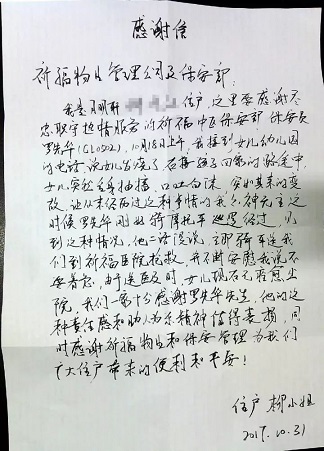 感谢信
祈福物业管理公司及保安部:
我是月明轩 住户,这里要感谢尽
忠职守热情服务的祈福中区保安部,保安员
罗先华(GL0502),10月18日上午,我接到女儿幼儿园
的电话,说女儿发烧了,在接孩子回家的路途中,
女儿突然全身抽搐,口吐白沫,突如其来的变
故,让从未经历过这种事情的我六神无主,这
时候罗先华刚好骑摩托车巡逻经过,见
到这种情况,他二话没说,立即骑车送我
们到祈福医院抢救,并不断安慰我说不
要着急,由于送医及时,女儿现在已痊愈出
院,我们一家十分感谢罗先华先生,他的这
种责任感和助人为乐精神值得表揚,同
时感谢祈福物业和保安管理为我们
广大住户带来的便利和平安!
住户 柳小姐
2017.10.31